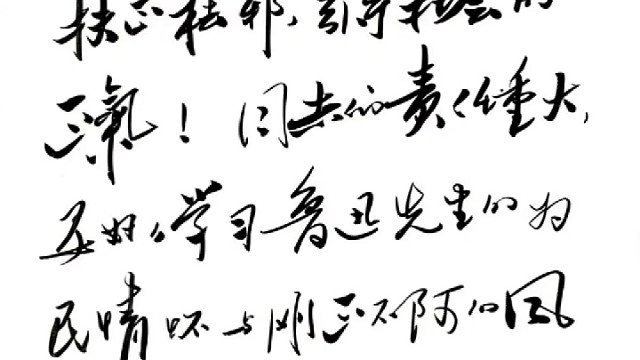 扶正祛邪,引导社会的
正氣!同志们责任重大,
要好好学习鲁迅先生的为
民情怀与刚正不阿的风